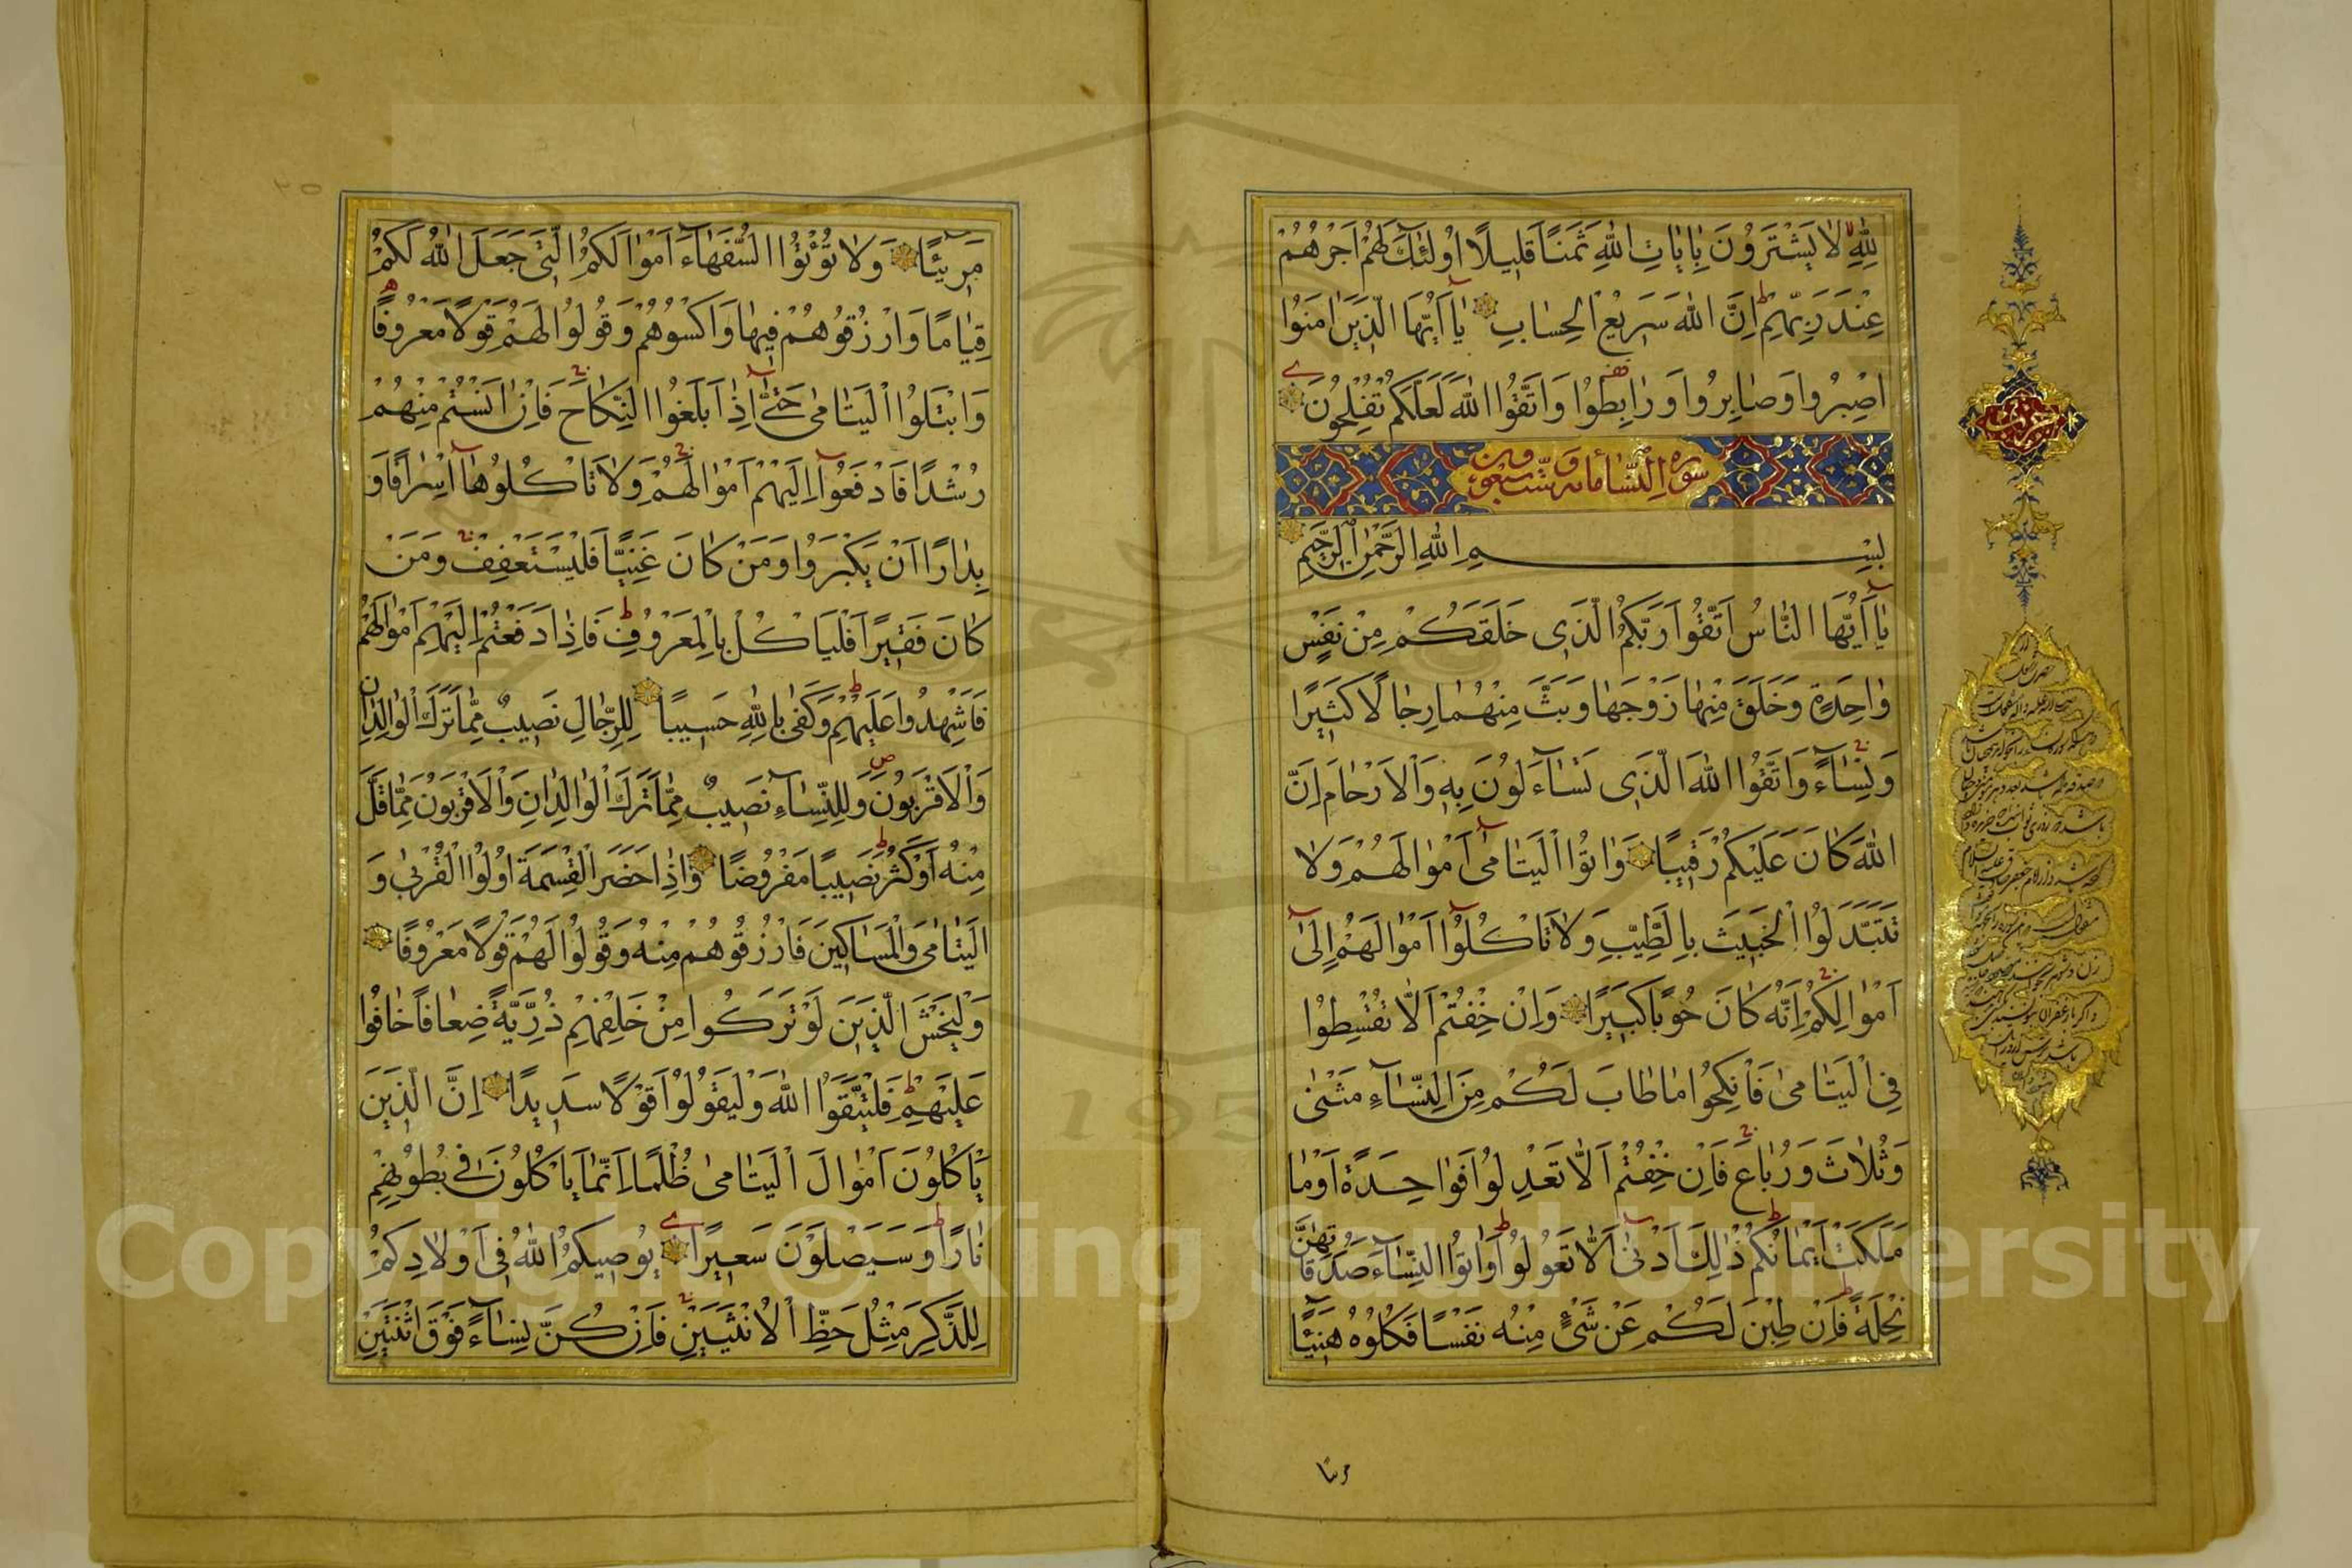 لِلّٰهِ لَا يَشْتَرُونَ بِاٰيَاتِ اللّٰهِ ثَمَنًا قَلِيلًا اُولٰئِكَ لَهُمْ اَجْرُهُمْ
عِنْدَ رَبِّهِمْ اِنَّ اللّٰهَ سَرِيعُ الْحِسَابِ يَا اَيُّهَا الَّذِينَ اٰمَنُوا
اصْبِرُوا وَصَابِرُوا وَرَابِطُوا وَاتَّقُوا اللّٰهَ لَعَلَّكُمْ تُفْلِحُونَ
سورة النساء مائة وست وسبعون
بِسْمِ اللّٰهِ الرَّحْمٰنِ الرَّحِيمِ
يَا اَيُّهَا النَّاسُ اتَّقُوا رَبَّكُمُ الَّذِى خَلَقَكُمْ مِنْ نَفْسٍ
وَاحِدَةٍ وَخَلَقَ مِنْهَا زَوْجَهَا وَبَثَّ مِنْهُمَا رِجَالًا كَثِيرًا
وَنِسَاءً وَاتَّقُوا اللّٰهَ الَّذِى تَسَاءَلُونَ بِهِ وَالْاَرْحَامَ اِنَّ
اللّٰهَ كَانَ عَلَيْكُمْ رَقِيبًا وَاٰتُوا الْيَتَامٰى اَمْوَالَهُمْ وَلَا
تَتَبَدَّلُوا الْخَبِيثَ بِالطَّيِّبِ وَلَا تَاْكُلُوا اَمْوَالَهُمْ اِلٰى
اَمْوَالِكُمْ اِنَّهُ كَانَ حُوبًا كَبِيرًا وَاِنْ خِفْتُمْ اَلَّا تُقْسِطُوا
فِى الْيَتَامٰى فَانْكِحُوا مَا طَابَ لَكُمْ مِنَ النِّسَاءِ مَثْنٰى
وَثُلَاثَ وَرُبَاعَ فَاِنْ خِفْتُمْ اَلَّا تَعْدِلُوا فَوَاحِدَةً اَوْ مَا
مَلَكَتْ اَيْمَانُكُمْ ذٰلِكَ اَدْنٰى اَلَّا تَعُولُوا وَاٰتُوا النِّسَاءَ صَدُقَاتِهِنَّ
نِحْلَةً فَاِنْ طِبْنَ لَكُمْ عَنْ شَىْءٍ مِنْهُ نَفْسًا فَكُلُوهُ هَنِيئًا
مريئا
مَرِيئًا وَلَا تُؤْتُوا السُّفَهَاءَ اَمْوَالَكُمُ الَّتِى جَعَلَ اللّٰهُ لَكُمْ
قِيَامًا وَارْزُقُوهُمْ فِيهَا وَاكْسُوهُمْ وَقُولُوا لَهُمْ قَوْلًا مَعْرُوفًا
وَابْتَلُوا الْيَتَامٰى حَتّٰى اِذَا بَلَغُوا النِّكَاحَ فَاِنْ اٰنَسْتُمْ مِنْهُمْ
رُشْدًا فَادْفَعُوا اِلَيْهِمْ اَمْوَالَهُمْ وَلَا تَاْكُلُوهَا اِسْرَافًا وَ
بِدَارًا اَنْ يَكْبَرُوا وَمَنْ كَانَ غَنِيًّا فَلْيَسْتَعْفِفْ وَمَنْ
كَانَ فَقِيرًا فَلْيَاْكُلْ بِالْمَعْرُوفِ فَاِذَا دَفَعْتُمْ اِلَيْهِمْ اَمْوَالَهُمْ
فَاَشْهِدُوا عَلَيْهِمْ وَكَفٰى بِاللّٰهِ حَسِيبًا لِلرِّجَالِ نَصِيبٌ مِمَّا تَرَكَ الْوَالِدَانِ
وَالْاَقْرَبُونَ وَلِلنِّسَاءِ نَصِيبٌ مِمَّا تَرَكَ الْوَالِدَانِ وَالْاَقْرَبُونَ مِمَّا قَلَّ
مِنْهُ اَوْ كَثُرَ نَصِيبًا مَفْرُوضًا وَاِذَا حَضَرَ الْقِسْمَةَ اُولُوا الْقُرْبٰى وَ
الْيَتَامٰى وَالْمَسَاكِينَ فَارْزُقُوهُمْ مِنْهُ وَقُولُوا لَهُمْ قَوْلًا مَعْرُوفًا
وَلْيَخْشَ الَّذِينَ لَوْ تَرَكُوا مِنْ خَلْفِهِمْ ذُرِّيَّةً ضِعَافًا خَافُوا
عَلَيْهِمْ فَلْيَتَّقُوا اللّٰهَ وَلْيَقُولُوا قَوْلًا سَدِيدًا اِنَّ الَّذِينَ
يَاْكُلُونَ اَمْوَالَ الْيَتَامٰى ظُلْمًا اِنَّمَا يَاْكُلُونَ فِى بُطُونِهِمْ
نَارًا وَسَيَصْلَوْنَ سَعِيرًا يُوصِيكُمُ اللّٰهُ فِى اَوْلَادِكُمْ
لِلذَّكَرِ مِثْلُ حَظِّ الْاُنْثَيَيْنِ فَاِنْ كُنَّ نِسَاءً فَوْقَ اثْنَتَيْنِ
Copyright © King Saud University
195